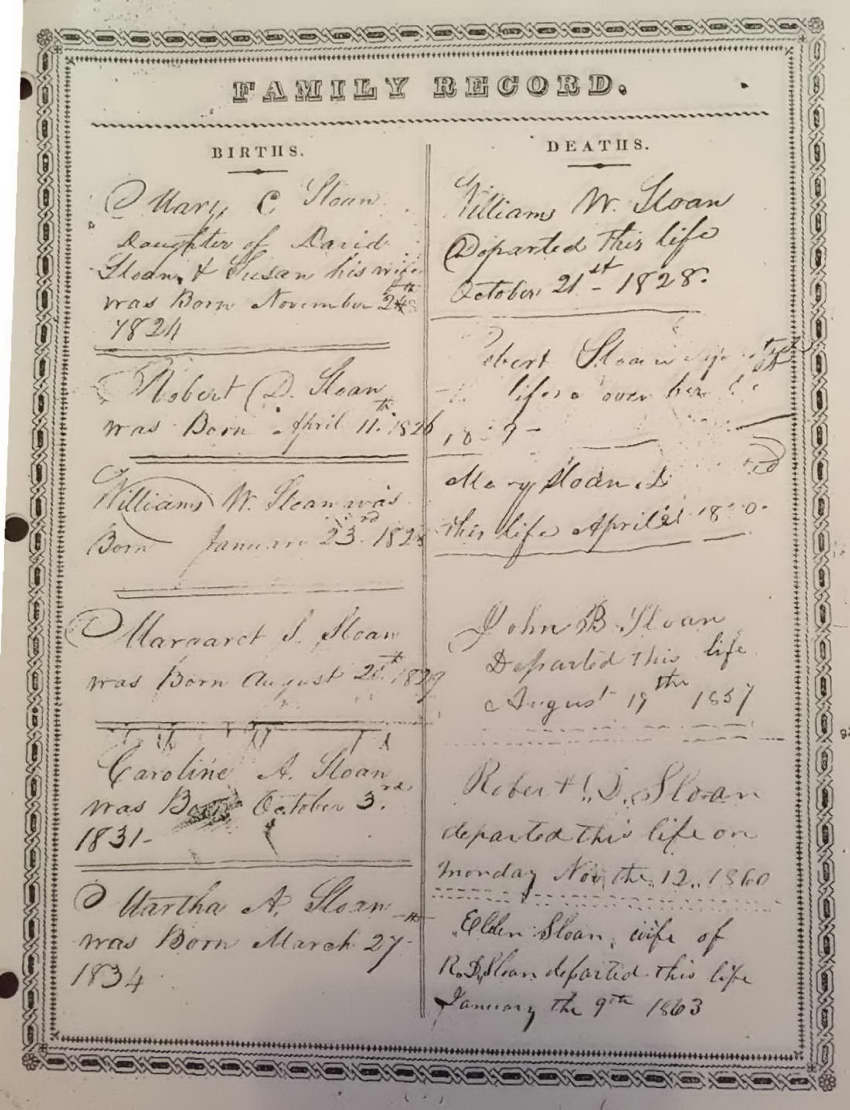 FAMILY RECORD.
BIRTHS.
Mary C Sloan
Daughter of David
Sloan & Susan his wife
was Born November
1824
Robert D. Sloan
was Born April 11th 1826
Williams W. Sloan was
Born January 23rd 1828
Margaret S. Sloan
was Born August 1829
Caroline A. Sloan
was Born October 3rd
1831-
Martha A. Sloan
was Born March 27th
1834
DEATHS.
Williams W. Sloan
Departed this life
October 21st - 1828.
Robert Sloan
life
Mary Sloan
this life April
John B. Sloan
Departed this life
August 19th 1857
Robert D. Sloan
departed this life on
Monday Nov. the 12.. 1860
Ellen Sloan, wife of
R. D. Sloan departed this life
January the 9th 1863